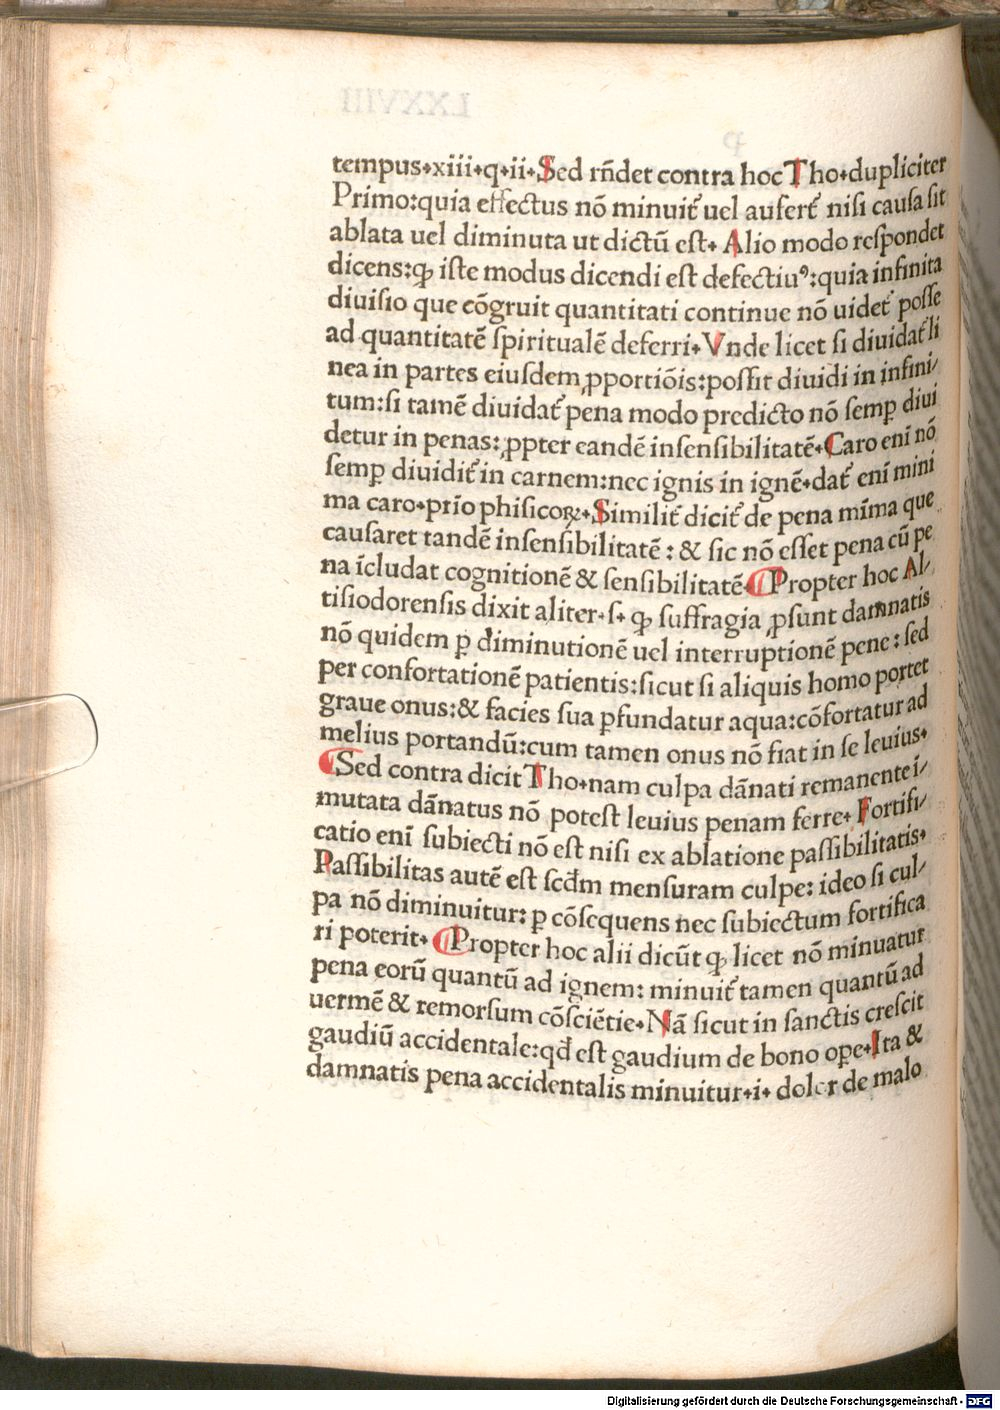 tempus·xiii·q·ii·Sed rñdet contra hoc Tho·dupliciter
Primo:quia effectus nō minuit᷑ uel aufert᷑ nisi causa sit
ablata uel diminuta ut dictū est· Alio modo respondet
dicens:ꝙ iste modus dicendi est defectiuꝰ:quia infinita
diuisio que cōgruit quantitati continue nō uidet᷑ posse
ad quantitatē spiritualē deferri·Vnde licet si diuidat᷑ li
nea in partes eiusdem ꝓportiōis:possit diuidi in infini/
tum:si tamē diuidat᷑ pena modo predicto nō semꝑ diui
detur in penas:ꝓpter eandē insensibilitatē·Caro enī nō
semꝑ diuidit᷑ in carnem:nec ignis in ignē·dat᷑ enī mini
ma caro·prīo phisicoꝝ·Similit᷑ dicit᷑ de pena mīma que
causaret tandē insensibilitatē:& sic nō esset pena cū pe
na īcludat cognitionē & sensibilitatē·¶Propter hoc Al/
tisiodorensis dixit aliter·s·ꝙ suffragia ꝓsunt damnatis
nō quidem ꝑ diminutionē uel interruptionē pene:sed
per confortationē patientis:sicut si aliquis homo portet
graue onus:& facies sua ꝑfundatur aqua:cōfortatur ad
melius portandū:cum tamen onus nō fiat in se leuius·
¶Sed contra dicit Tho·nam culpa dānati remanente ī/
mutata dānatus nō potest leuius penam ferre· Fortifi/
catio enī subiecti nō est nisi ex ablatione passibilitatis·
Passibilitas autē est scđm mensuram culpe:ideo si cul/
pa nō diminuitur:ꝑ cōsequens nec subiectum fortifica
ri poterit· ¶Propter hoc alii dicūt ꝙ licet nō minuatur
pena eorū quantū ad ignem:minuit᷑ tamen quantū ad
uermē & remorsum cōsciētie·Nā sicut in sanctis crescit
gaudiū accidentale:qđ est gaudium de bono oꝑe·Ita &
damnatis pena accidentalis minuitur·i· dolor de malo
Digitalisierung gefördert durch die Deutsche Forschungsgemeinschaft - DFG